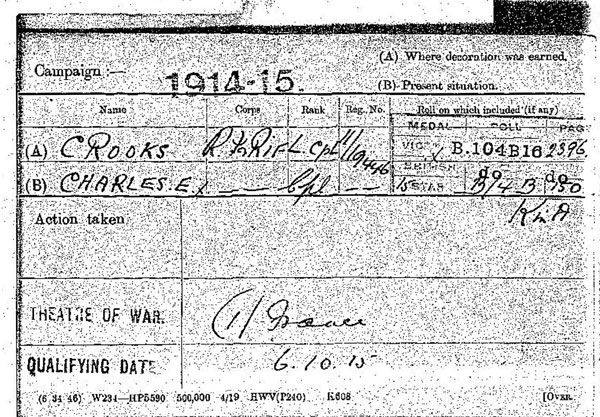 (A) Where decoration was earned.
Campaign :— 1914-15.
(B) Present situation.
Name Corps Rank Reg. No. Roll on which included (if any)
MEDAL ROLL PAGE
(A) CROOKS R Ir Rif L Cpl 11/19446 VICT X B.104B16 2396
BRITISH do do
(B) CHARLES. E. — " — Cpl — " — 15 STAR B/4 B
K in A
Action taken
THEATRE OF WAR. (1) France
QUALIFYING DATE 6.10.15
(6 34 46) W234—HP5590 500,000 4/19 HWV(P240) K608 [OVER.